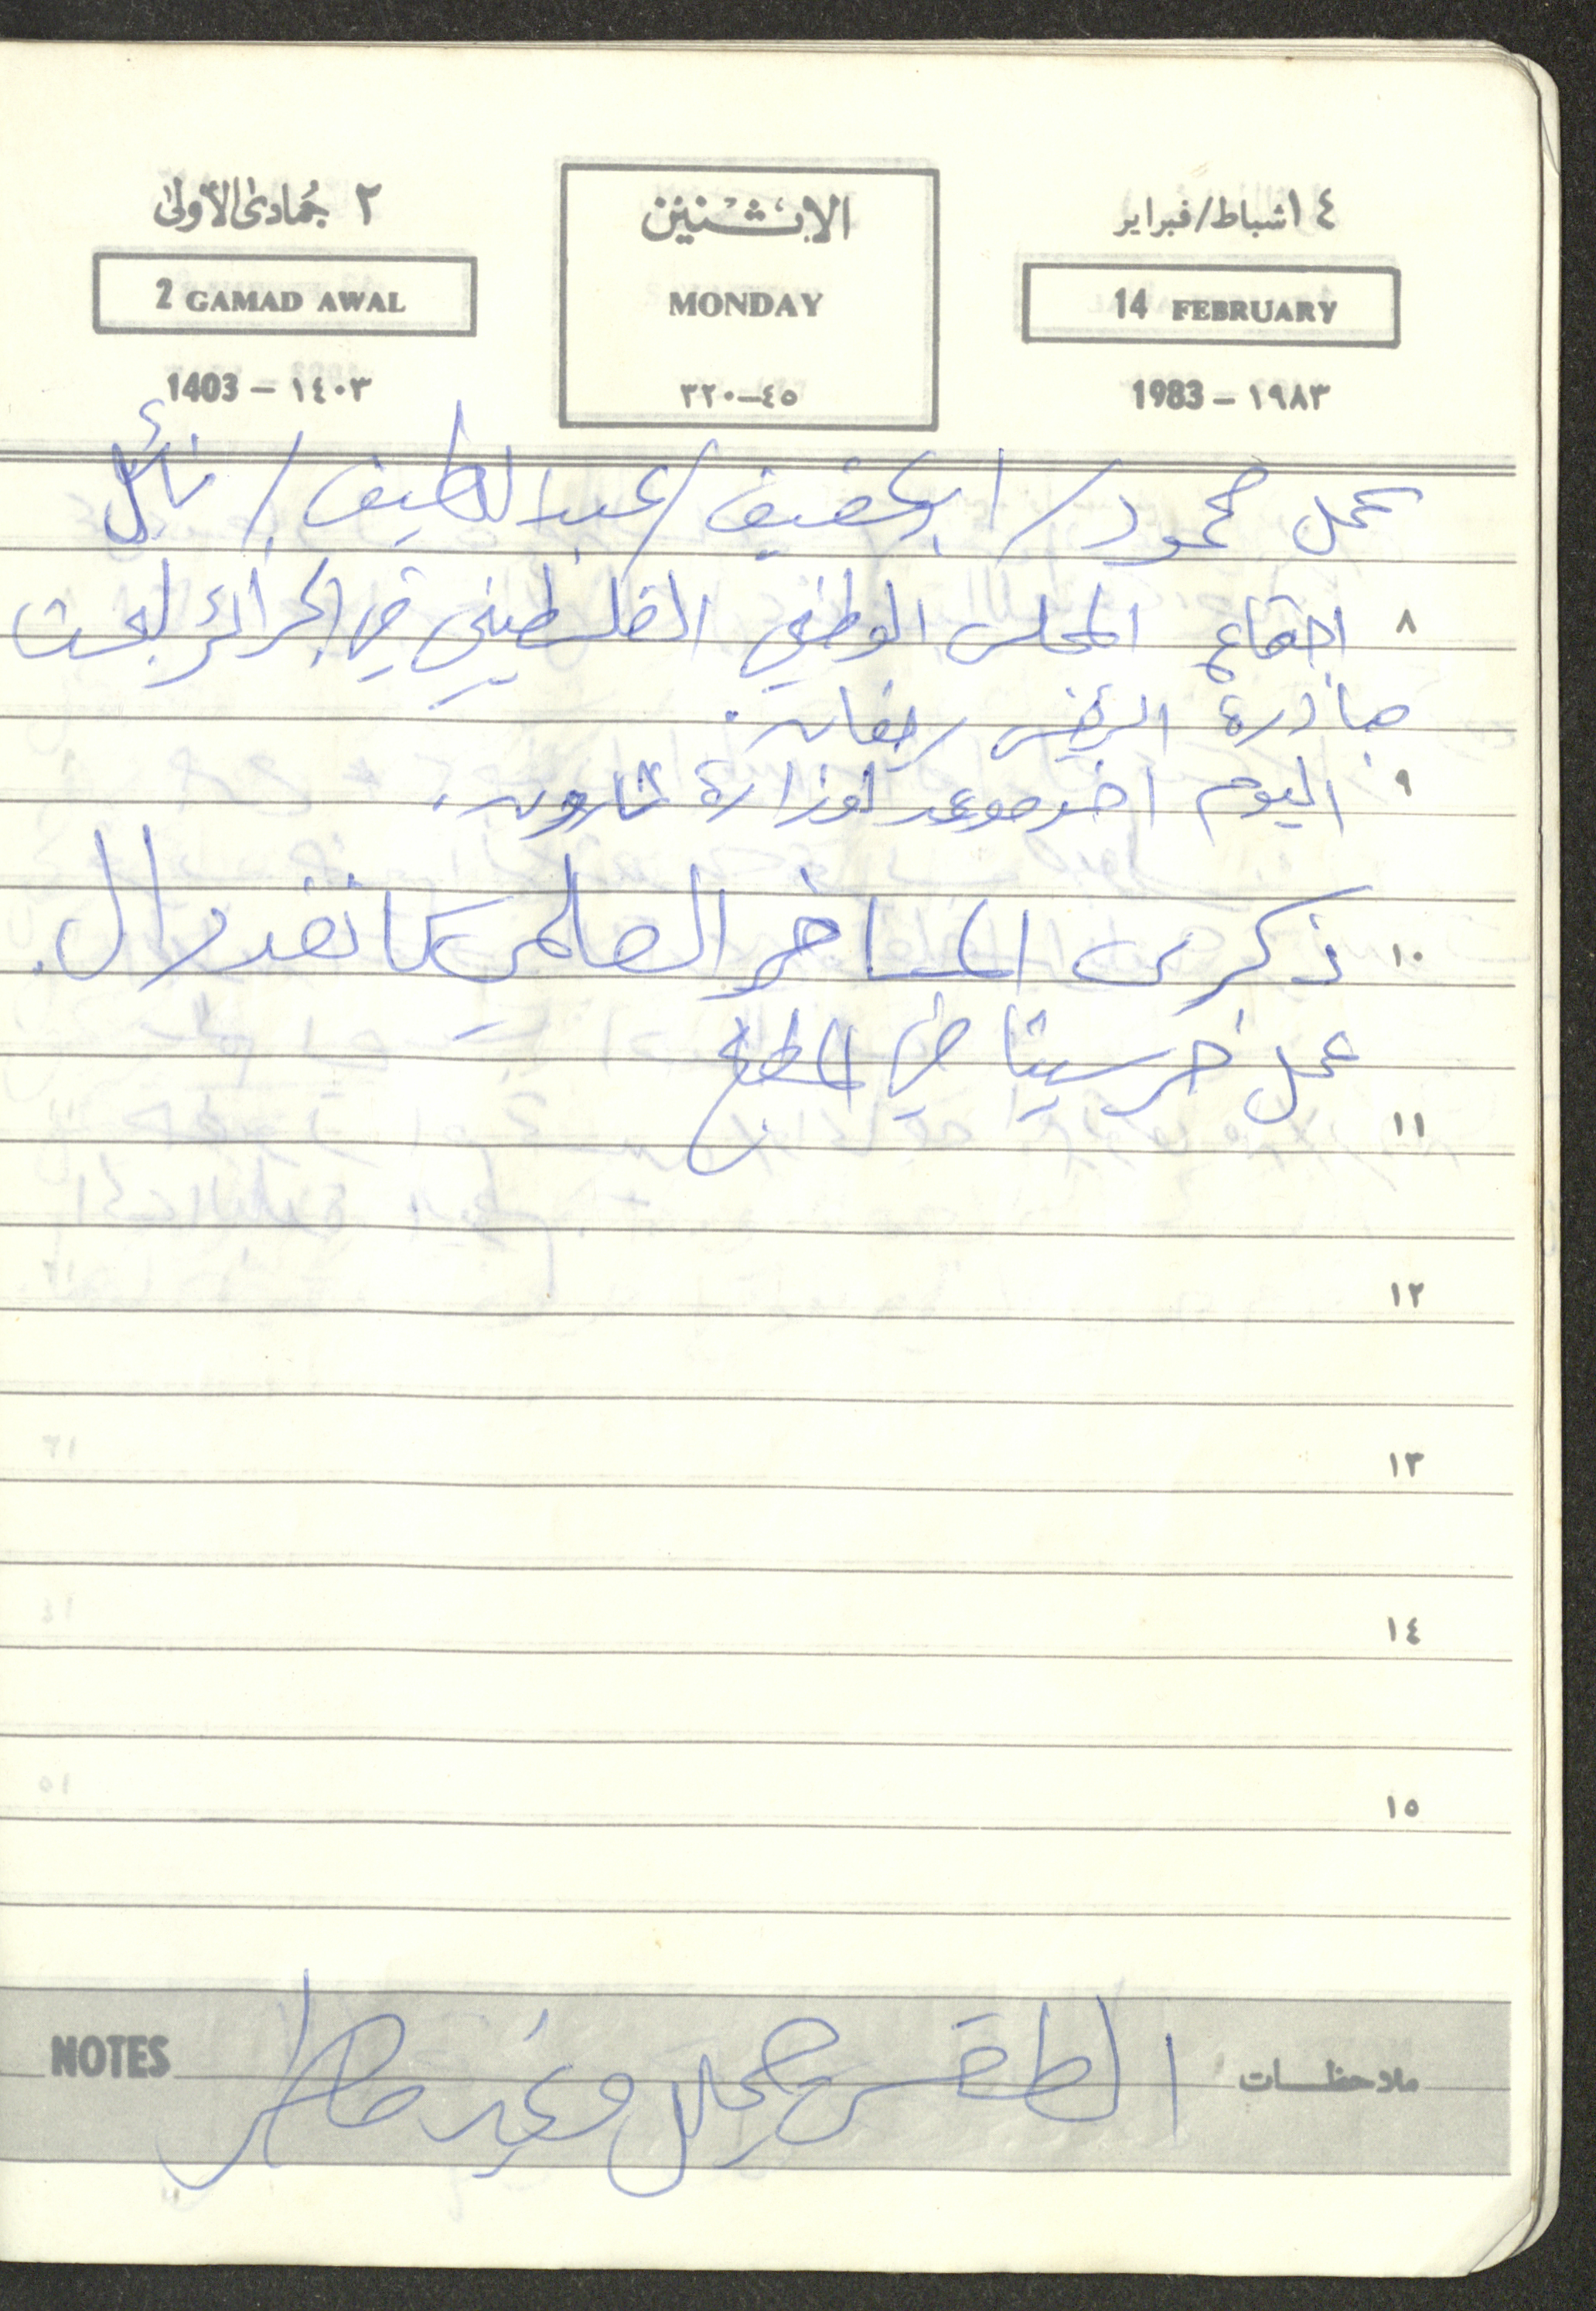 ١٤ شباط/فبراير
الاثنين
٢ جمادى الأولى
14 FEBRUARY
MONDAY
2 GAMAD AWAL
1983 – ١٩٨٣
٤٥–٣٢٠
1403 – ١٤٠٣
عمل محمود / ابو عفيف / عبد اللطيف / نائل
٨ اجتماع المجلس الوطني الفلسطيني في الجزائر لبحث
مبادرة الرئيس ريغان.
٩ اليوم اخر موعد لوزارة شارون.
١٠ ذكرى
عمل خرسينا في المطلع
١١
١٢
١٣
١٤
١٥
ملاحظات الطقس جميل وغير ماطر NOTES